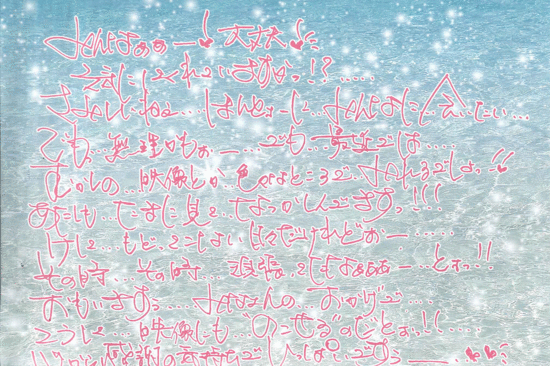 みんなぁぁー!♥大丈夫♥
元気にしてくれていますかっ!?.....
さみしいねぇ...ほんとぉーに...みんなに...会いたい...
でもっ...無理かもぉー.....でも...最近では....
むかしの...映像とか...色んなところで...みれるでしょっ♥
あたしも...たまに見て...なつかしんでますっ!!!
けして...もどってこない日々だけれどぉー......
その時...その時...頑張ってたなぁぁぁー...とぉっ!!
おもいますぅ....みなさんの...おかげで...
こうして...映像にも"のこせる"のだとぉっ!(....
感謝の気持ちでいっぱいですぅ___.♥♥